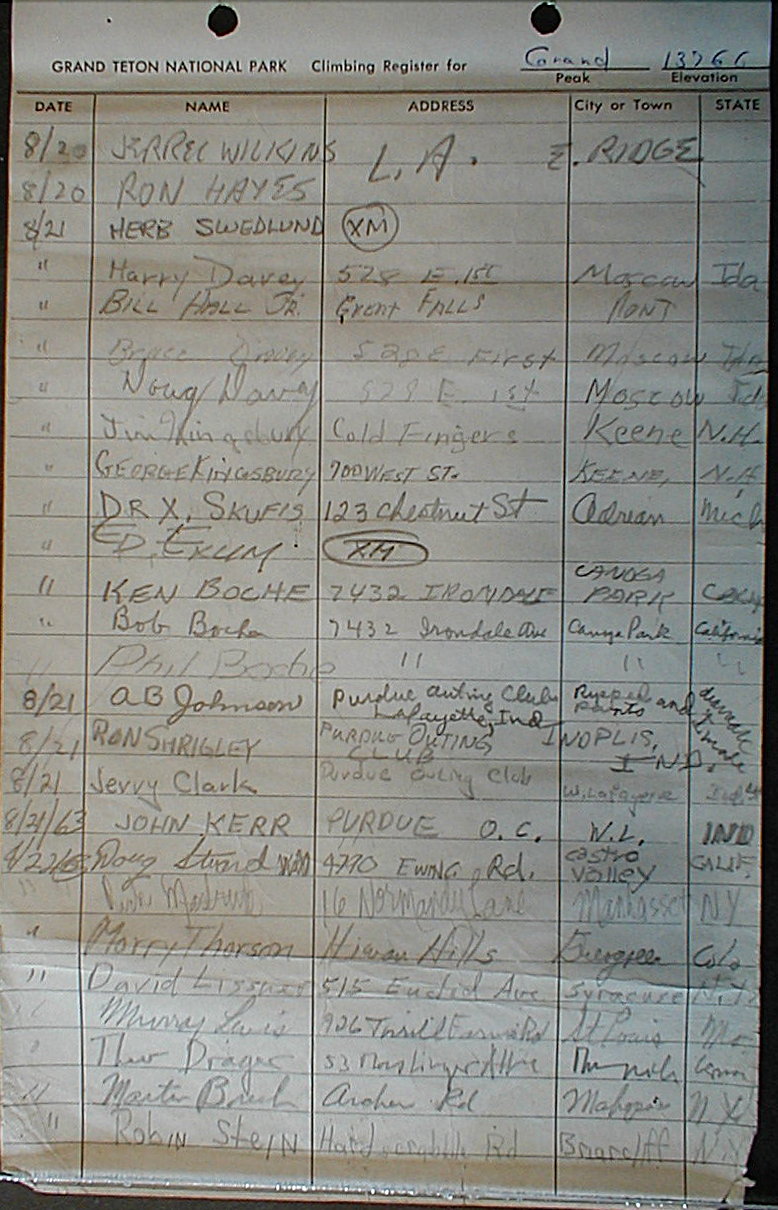 GRAND TETON NATIONAL PARK Climbing Register for Grand 13766
Peak Elevation
DATE NAME ADDRESS City or Town STATE
8/20 JERREL WILKINS L.A. E. RIDGE
8/20 RON HAYES
8/21 HERB SWEDLUND XM
" Harry Davey 528 E. 1st Moscow Ida
" BILL HALL JR. Great FALLS MONT
" Bruce Davey 528 E First Moscow Ida
" Doug Davey 528 E. 1st Moscow Ida
" Jim Kingsbury Cold Fingers Keene N.H.
" GEORGE KINGSBURY 700 WEST ST. KEENE, N.H
" DR X. SKUFIS 123 Chestnut St Adrian Mich
" ED. EKUM XM
" KEN BOCHE 7432 IRONDALE CANOGA PARK
" Bob Boche 7432 Irondale Ave Canoga Park California
" Phil Boche " " "
8/21 AB Johnson Purdue Outing Club Lafayette, Ind Ripped pants and
8/21 RON SHRIGLEY PURDUE OUTING CLUB INDPLIS, IND.
8/21 Jerry Clark Purdue Outing Club W. Lafayette
8/21/63 JOHN KERR PURDUE O.C. W.L. IND
8/22/63 Doug Strand 4790 EWING Rd. Castro Valley CALIF.
" 16 Normandy Lane Manhasset NY
" Morry Thorson Hiwan Hills Evergreen Colo
" David Lissner 515 Euclid Ave Syracuse N.Y.
" Murray Lewis 926 St Louis Mo.
" Theo Drager 53 Munich
" Martin Archer Rd Mahopac N Y
" Robin Stein Hardscrabble Rd Briarcliff N.Y.